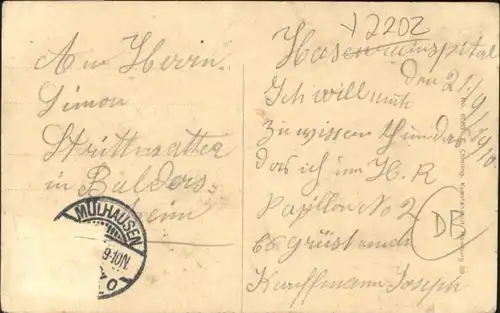 y 2202
An Herrn
Simon
Strittmatter
in Balders-
heim
MÜLHAUSEN
9-10N.
Hasenrainspital
den 21/9 1910
Ich will euch
zu wissen thun das
das ich im H. R
Papillon No 2
es grüst euch
Kauffmann Joseph
DB